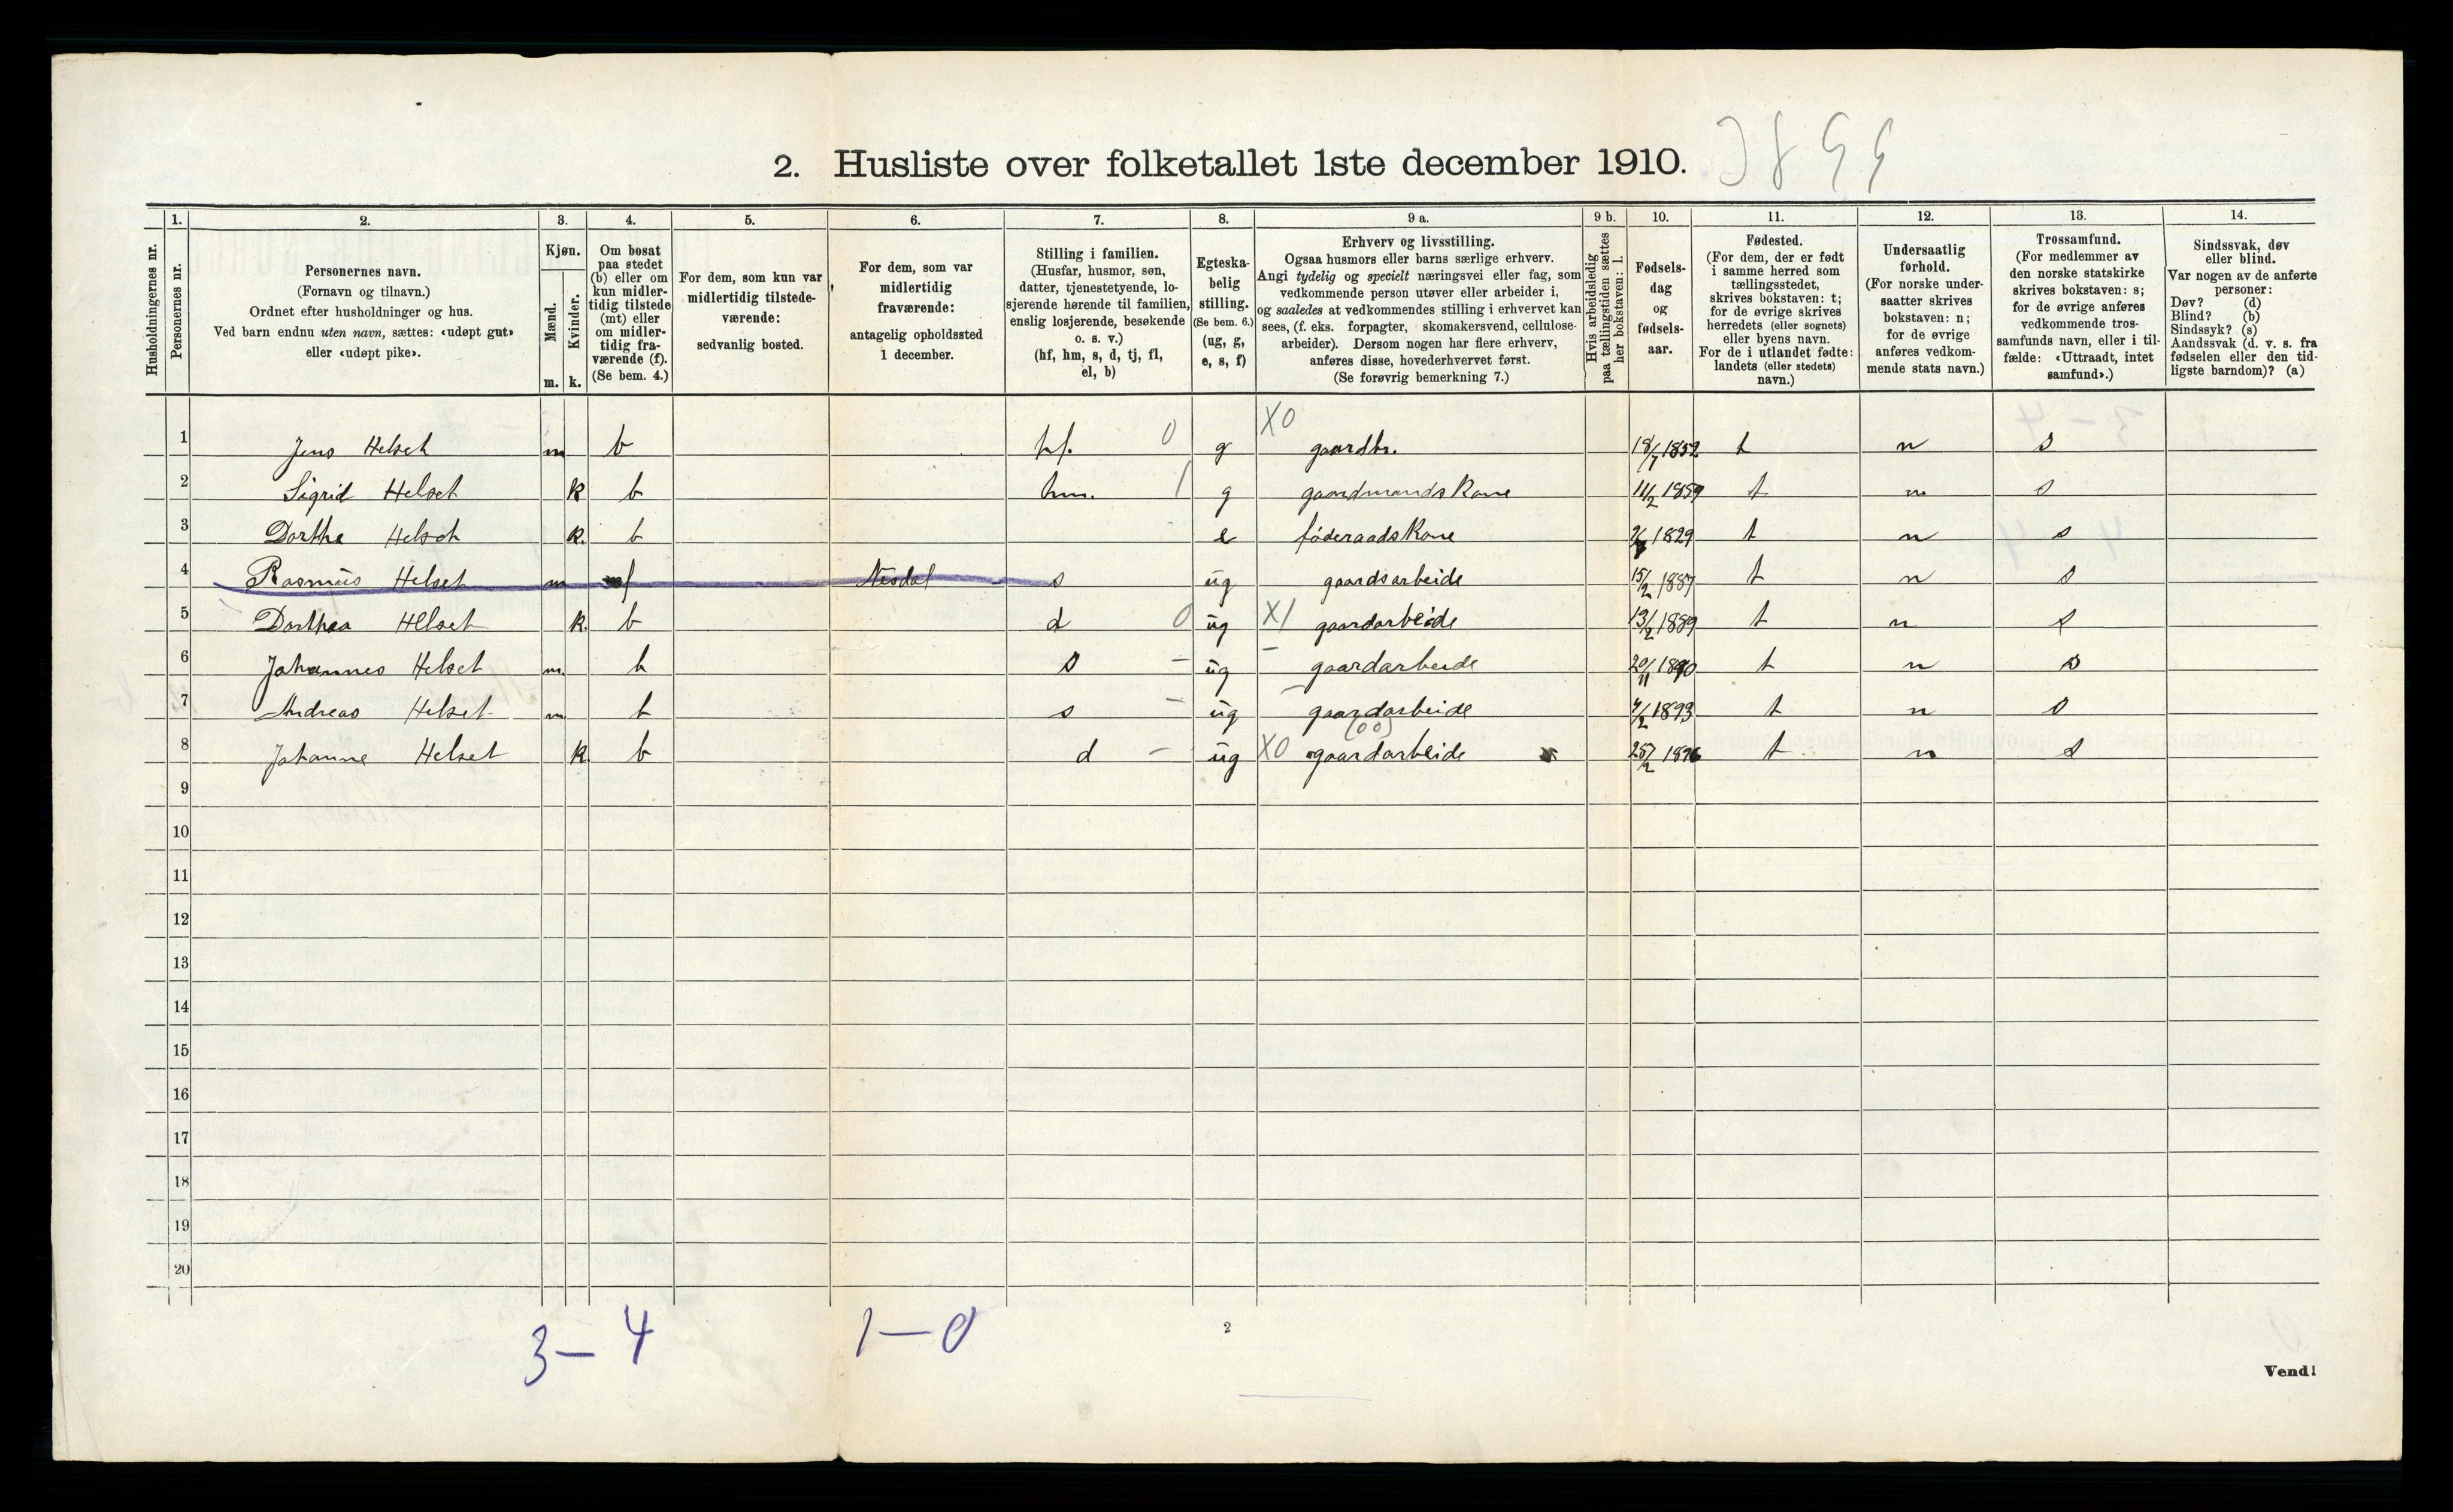 2. Husliste over folketallet 1ste december 1910. 3899
1. 2. 3. 4. 5. 6. 7. 8. 9 a. 9 b. 10. 11. 12. 13. 14.
Husholdningernes nr.
Personernes nr.
Personernes navn.
(Fornavn og tilnavn.)
Ordnet efter husholdninger og hus.
Ved barn endnu uten navn, sættes: «udøpt gut»
eller «udøpt pike».
Kjøn.
Mænd.
Kvinder.
m. k.
Om bosat
paa stedet
(b) eller om
kun midler-
tidig tilstede
(mt) eller
om midler-
tidig fra-
værende (f).
(Se bem. 4.)
For dem, som kun var
midlertidig tilstede-
værende:
sedvanlig bosted.
For dem, som var
midlertidig
fraværende:
antagelig opholdssted
1 december.
Stilling i familien.
(Husfar, husmor, søn,
datter, tjenestetyende, lo-
sjerende hørende til familien,
enslig losjerende, besøkende
o. s. v.)
(hf, hm, s, d, tj, fl,
el, b)
Egteska-
belig
stilling.
(Se bem. 6.)
(ug, g,
e, s, f)
Erhverv og livsstilling.
Ogsaa husmors eller barns særlige erhverv.
Angi tydelig og specielt næringsvei eller fag, som
vedkommende person utøver eller arbeider i,
og saaledes at vedkommendes stilling i erhvervet kan
sees, (f. eks. forpagter, skomakersvend, cellulose-
arbeider). Dersom nogen har flere erhverv,
anføres disse, hovederhvervet først.
(Se forøvrig bemerkning 7.)
Hvis arbeidsledig
paa tællingstiden sættes
her bokstaven: l.
Fødsels-
dag
og
fødsels-
aar.
Fødested.
(For dem, der er født
i samme herred som
tællingsstedet,
skrives bokstaven: t;
for de øvrige skrives
herredets (eller sognets)
eller byens navn.
For de i utlandet fødte:
landets (eller stedets)
navn.)
Undersaatlig
forhold.
(For norske under-
saatter skrives
bokstaven: n;
for de øvrige
anføres vedkom-
mende stats navn.)
Trossamfund.
(For medlemmer av
den norske statskirke
skrives bokstaven: s;
for de øvrige anføres
vedkommende tros-
samfunds navn, eller i til-
fælde: «Uttraadt, intet
samfund».)
Sindssvak, døv
eller blind.
Var nogen av de anførte
personer:
Døv? (d)
Blind? (b)
Sindssyk? (s)
Aandssvak (d. v. s. fra
fødselen eller den tid-
ligste barndom)? (a)
1 Jens Helset m b hf. 0 g X0 gaardbr. 18/7 1852 t n s
2 Sigrid Helset k b hm. 1 g gaardmandskone 11/2 1859 t n s
3 Dorthe Helset k. b e føderaadskone 1829 t n s
4 Rasmus Helset m f Nesdal s ug gaardsarbeide 15/2 1887 t n s
5 Dorthea Helset k. b d 0 ug X1 gaardarbeide 13/2 1889 t n s
6 Johannes Helset m. b s – ug – gaardarbeide 20/11 1890 t n s
7 Andreas Helset m b s – ug – gaardarbeide 4/2 1893 t n s
8 Johanne Helset k. b d – ug X0 (00) gaardarbeide 25/2 1896 t n s
9
10
11
12
13
14
15
16
17
18
19
20
3–4 1–0
2
Vend!